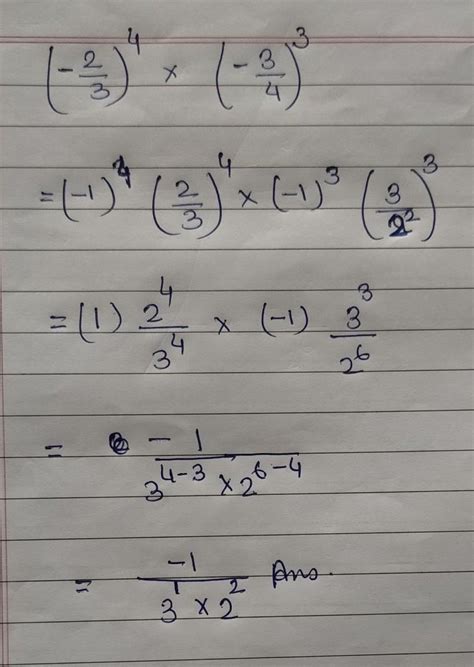 (-2/3)^4 × (-3/4)^3
= (-1)^4 (2/3)^4 × (-1)^3 (3/2^2)^3
= (1) 2^4/3^4 × (-1) 3^3/2^6
= -1/(3^(4-3) × 2^(6-4))
= -1/(3^1 × 2^2) Ans.